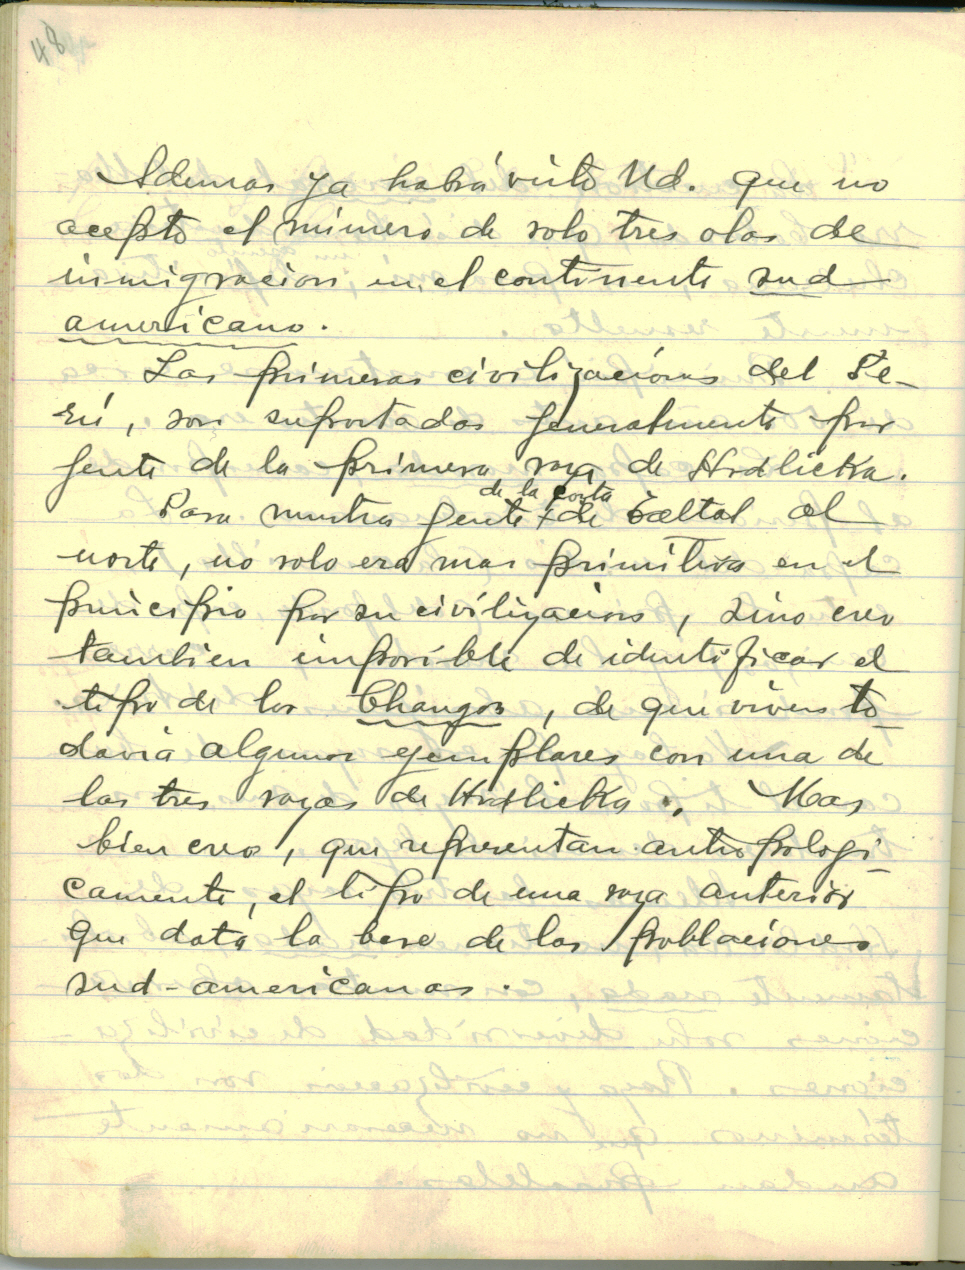 48
Ademas ya habrá visto Ud. que no
acepto el número de solo tres olas de
inmigracion en el continente sud
americano.
Las primeras civilizacíones del Pe-
rú, son soportadas generalmente por
gente de la primera raza de Hrdlicka.
Para nuestra gente de la costa de Taltal al
norte, no solo era mas primitiva en el
principio por su civilizacion, sino creo
tambien imposible de identificar el
tipo de los Changos, de que viven to-
davia algunos ejemplares con una de
las tres razas de Hrdlicka. Mas
bien creo, que representan antropologi-
camente, el tipo de una raza anterior
que data la base de las poblaciones
sud-americanas.